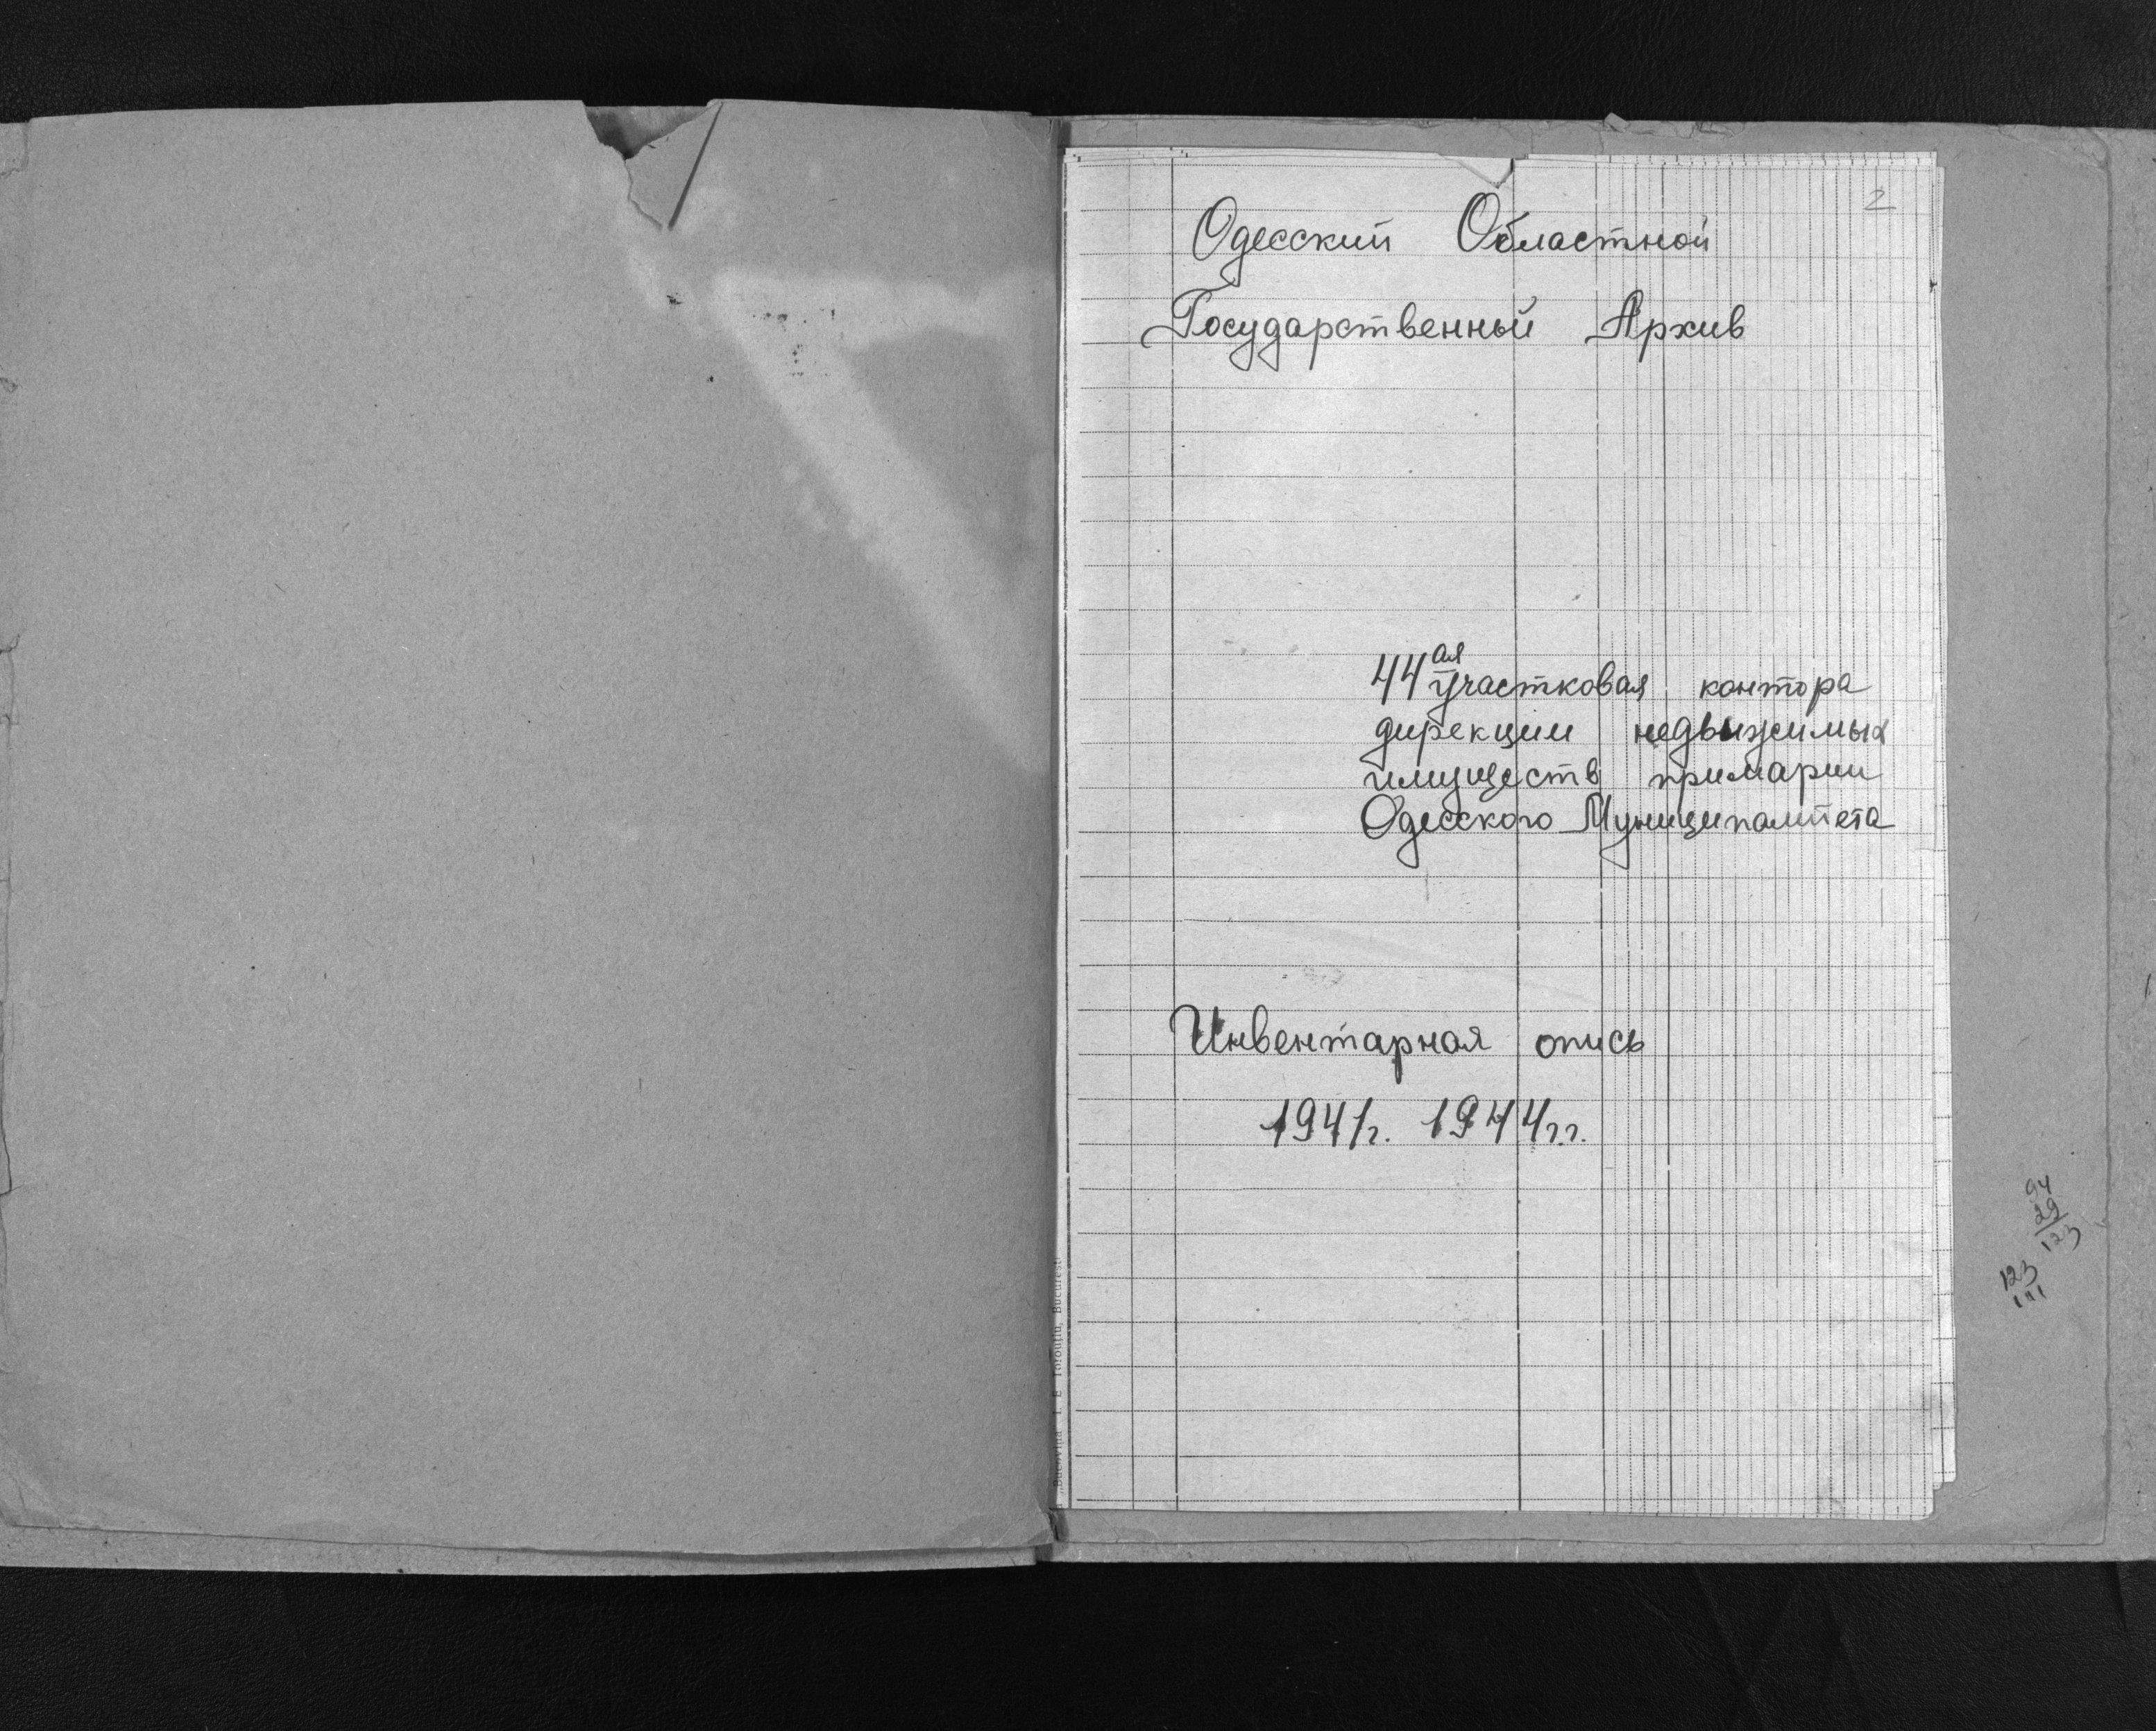 2
Одесский Областной
Государственный Архив
44ая Участковая контора
дирекции недвижимых
имуществ примарии
Одесского Муниципалитета
Инвентарная опись
1941г. 1944г.г.
94
29
123
123
III